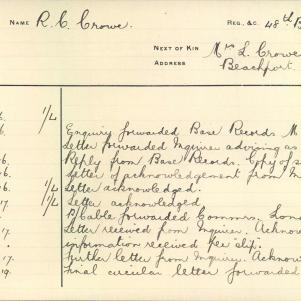 NAME R. C. Crowe. REG. &C. 48th B
NEXT OF KIN Mrs L. Crowe
ADDRESS Beachport.
6. 1/4 Enquiry forwarded Base Records M
Letter forwarded Inquirer advising as
6. Reply from Base Records. Copy of
6. Letter of acknowledgement from
6. 1/4 Letter acknowledged.
17. 1/4 Letter acknowledged
B/Cable forwarded Commrs. Lond
17. Letter received from Inquirer. Acknow
information received per slip.
17. Further letter from Inquiry. Acknow
19. Final circular letter forwarded